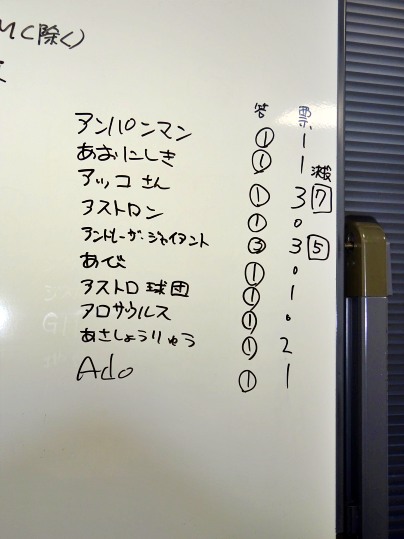 MC(除く)
答 票
アンパンマン ① 1
あおにしき ① 1 決戦
アッコさん ① 3 7
アストロン ① 0
アンドレ・ザ・ジャイアント ③ 3 5
あび ① 0
アストロ球団 ① 1
アロサウルス ① 0
あさしょうりゅう ① 2
Ado ① 1